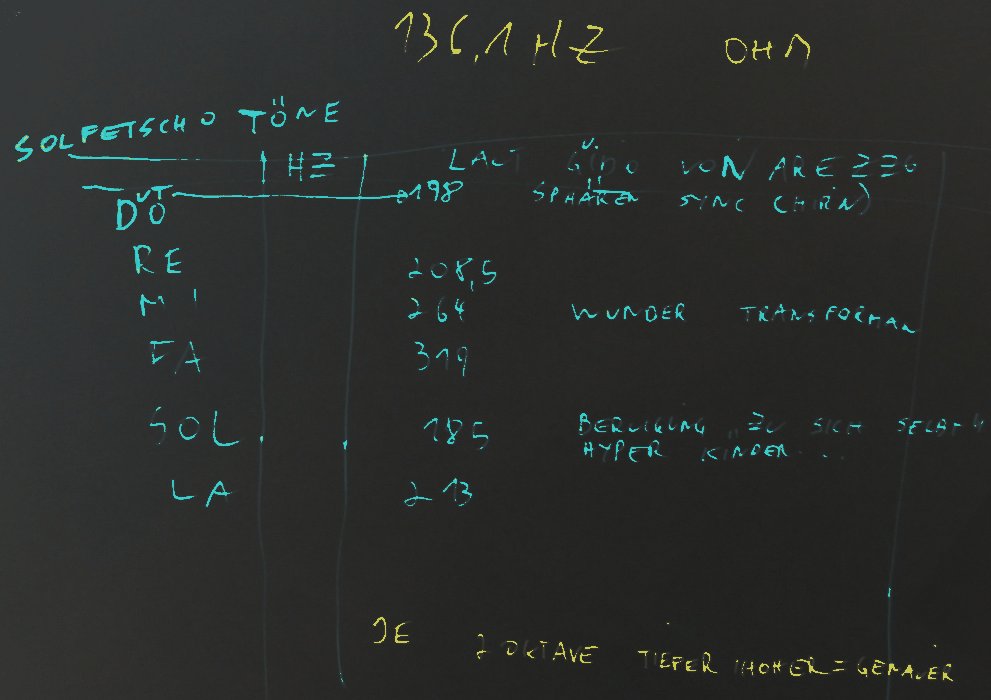 136,1 HZ OHM
SOLFETSCHO TÖNE
HZ LAUT GUIDO VON AREZZO
UT 198 SPHÄREN SYNC CHIRN)
DO
RE 208,5
MI 264 WUNDER TRANSFORMAN
FA 319
SOL 185 ZU SICH SELBST
HYPER KINDER...
LA 213
JE OKTAVE TIEFER HÖHER = GENAUER